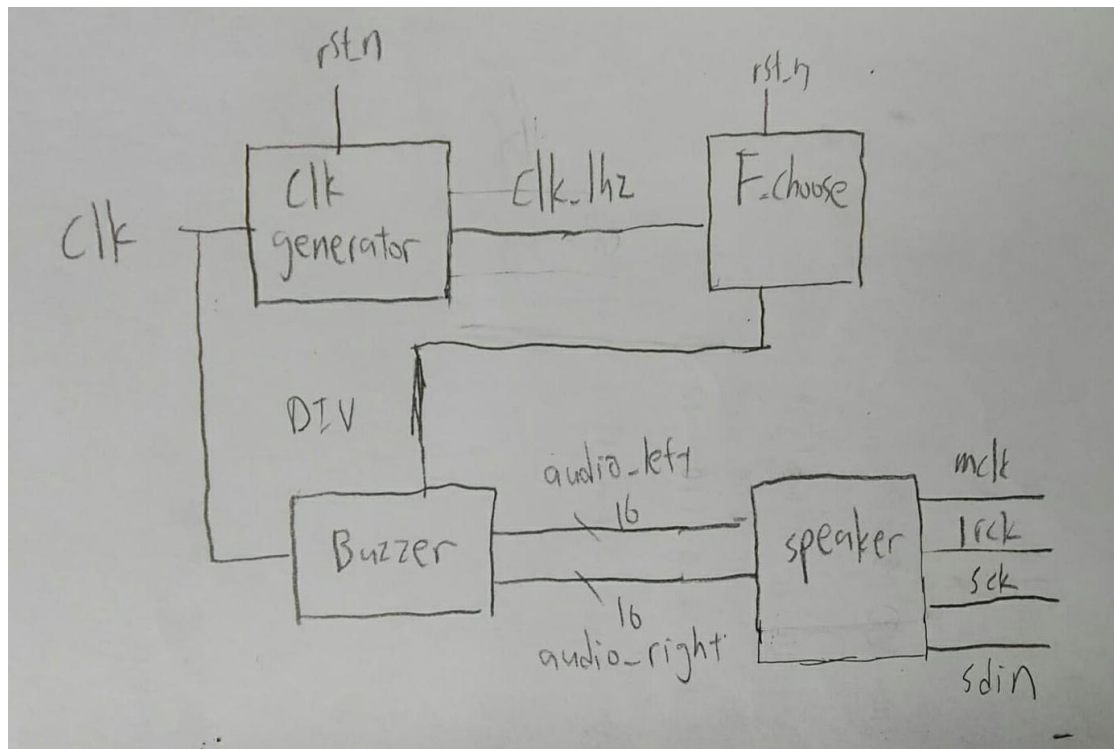 rst_n
rst_n
Clk
generator
Clk_1hz
F_choose
Clk
DIV
audio_left
16
Buzzer
16
audio_right
speaker
mclk
lrck
sck
sdin